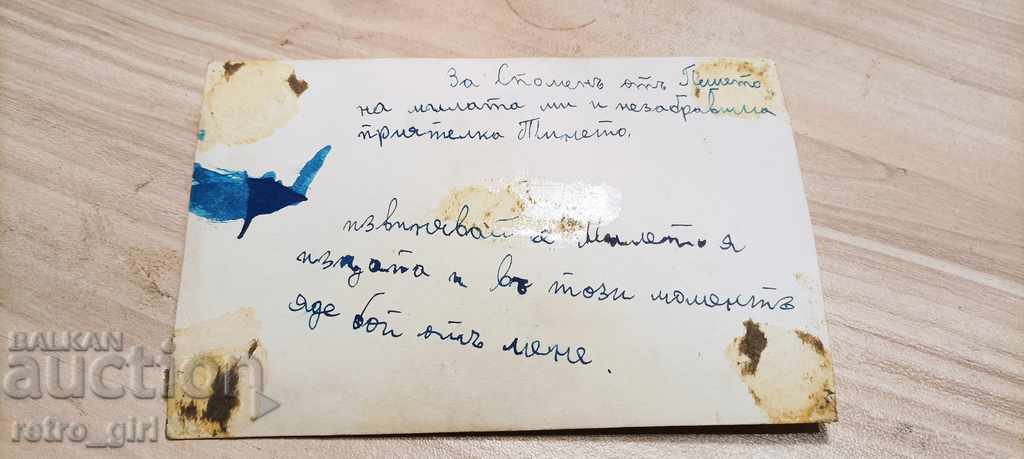 За Споменъ отъ Пешето
на милата ми и незабравима
приятелка Тинето.
извинявай че Милетo я
изцапа и въ този моментъ
яде бой отъ мене.
BALKAN
auction
retro_girl